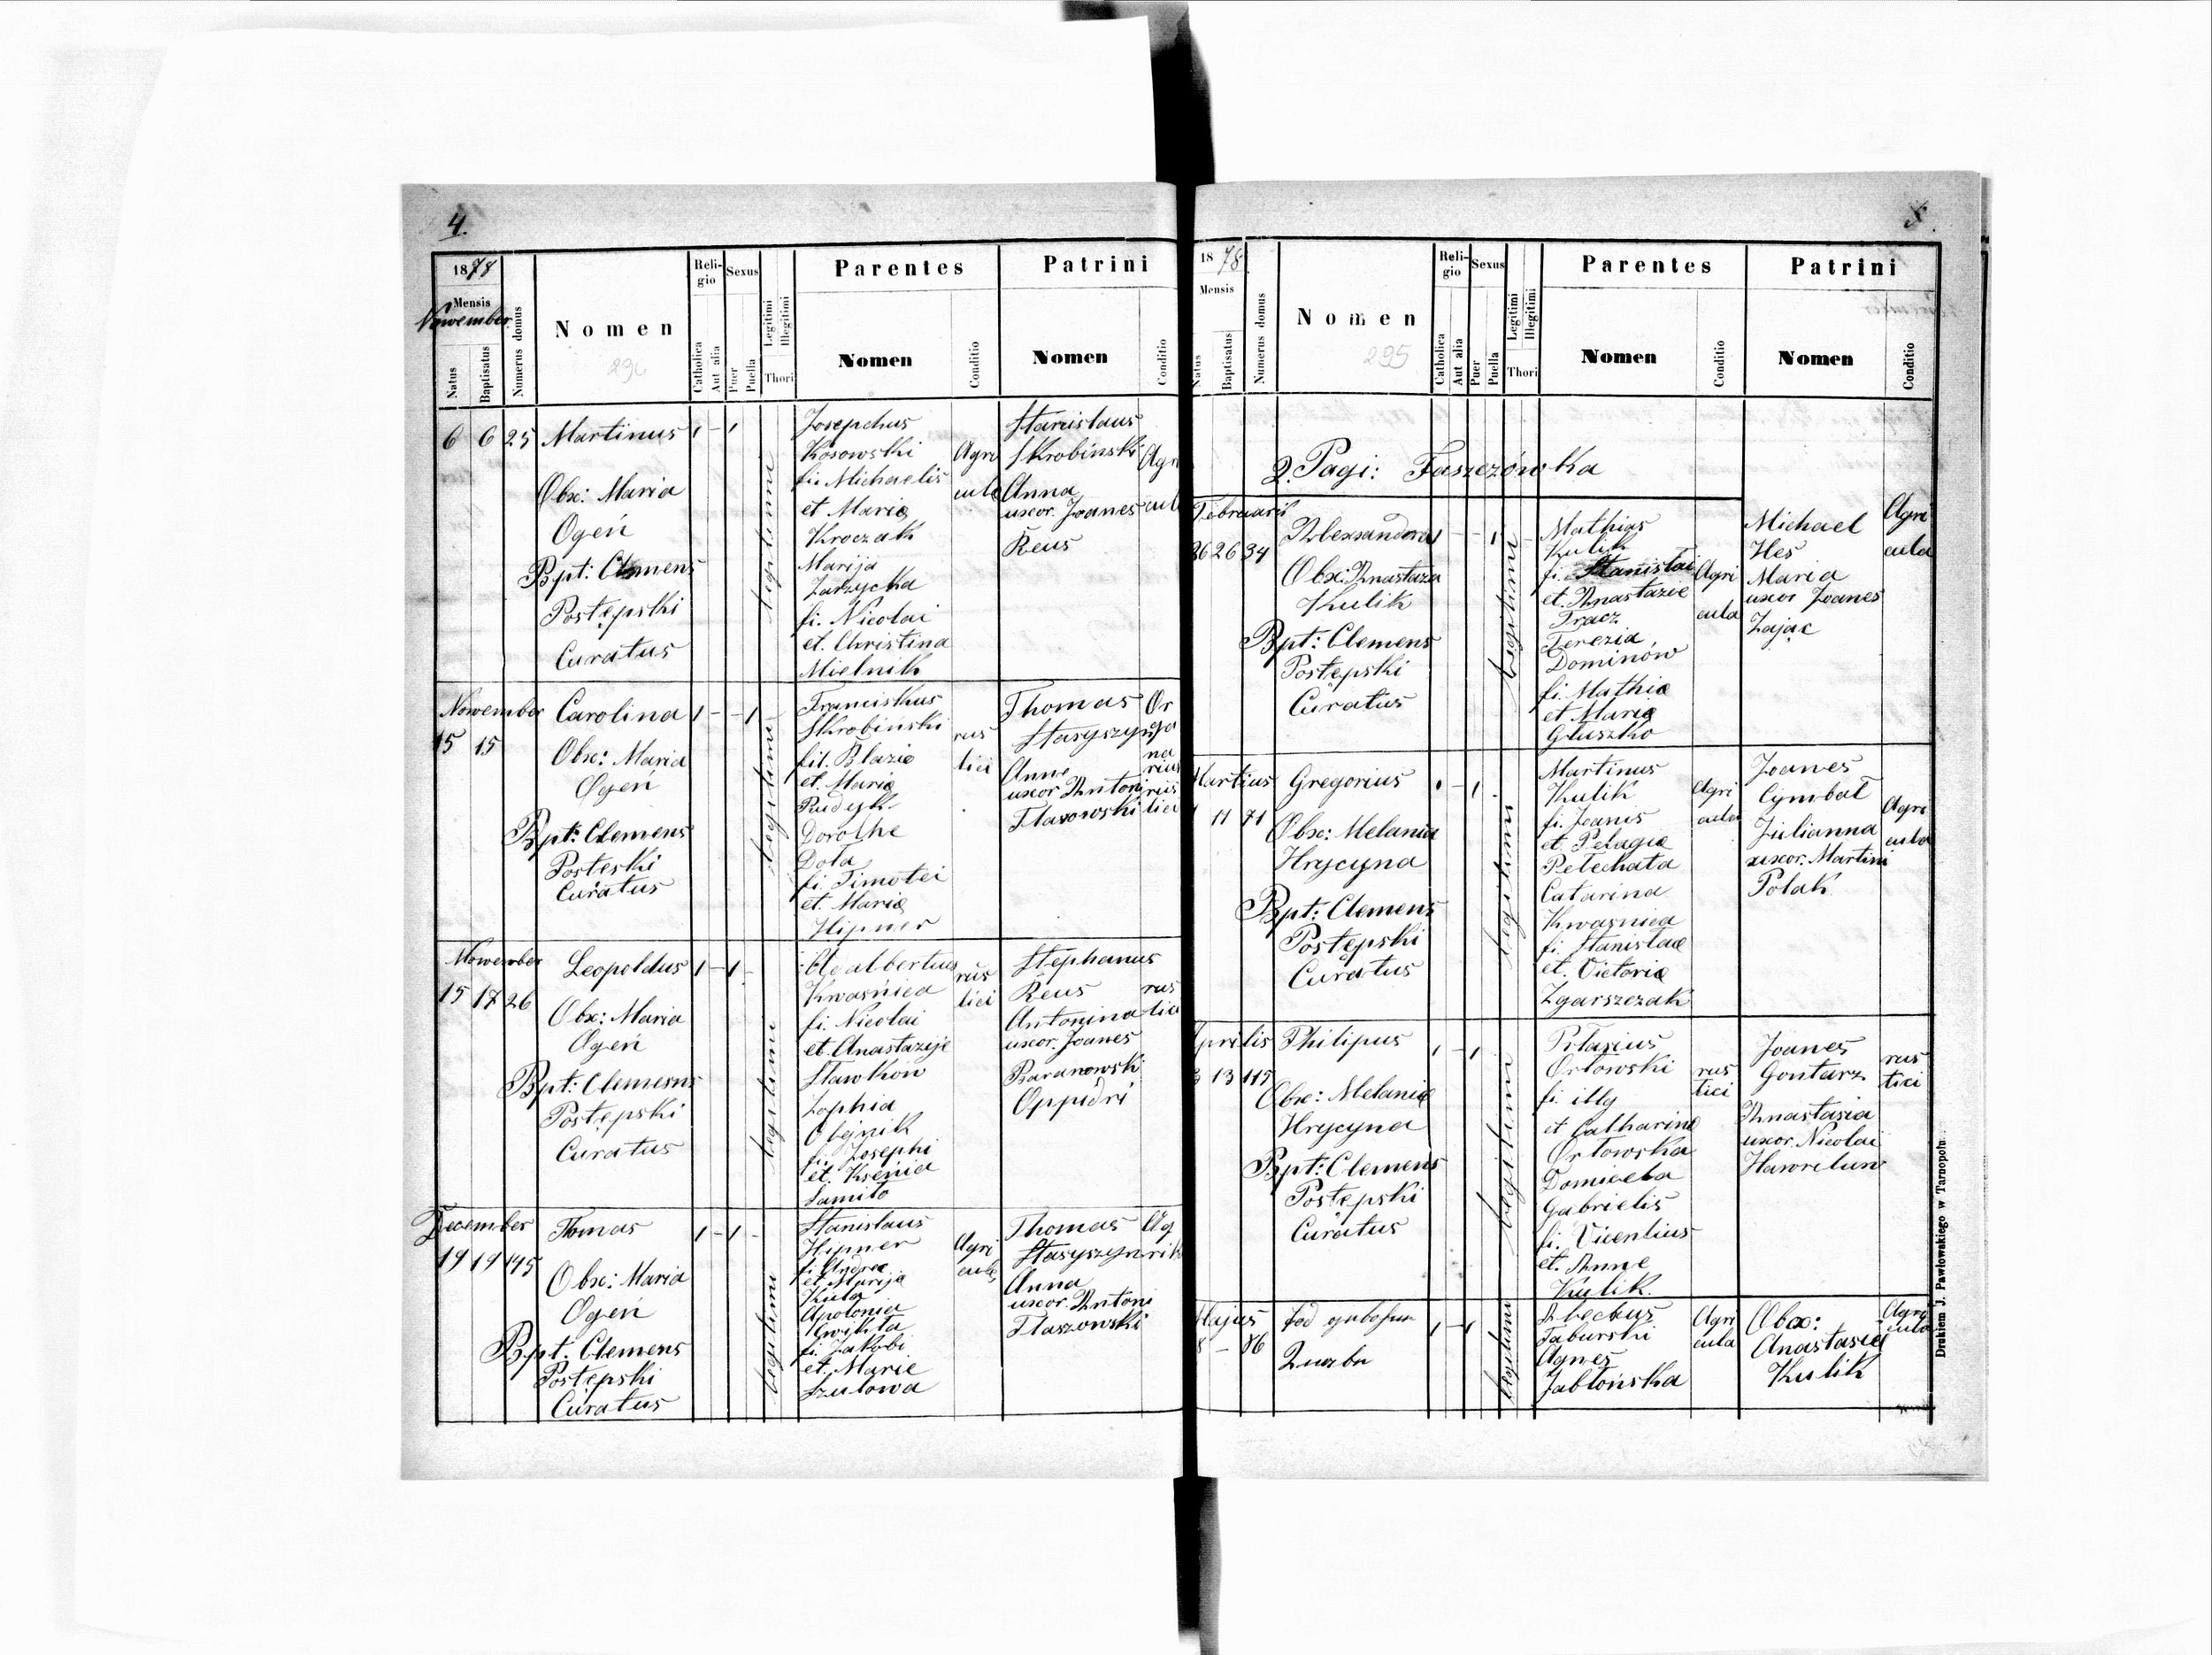 4.
1878
Mensis
November
Natus
Baptisatus
Numerus domus
Nomen
294
Reli-
gio
Catholica
Aut alia
Sexus
Puer
Puella
Legitimi
Illegitimi
Thori
Parentes
Nomen
Conditio
Patrini
Nomen
Conditio
6 6 25
Martinus
Obx: Maria
Ogeń
Bpt: Clemens
Postępski
Curatus
Josephus
Kosowski
fi. Michaelis
et Marię
Kroczak
Marija
Zarzycka
fi. Nicolai
et. Christina
Mielnik
Agri
cula
Stanislaus
Skrobinski
Anna
uxor. Joanes
Reus
November
15 15
Carolina
Obx: Maria
Ogeń
Bpt: Clemens
Posteski
Curatus
legitimi
Franciskus
Skrobinski
fil. Blazie
et. Marię
Rudyk.
Dorothe
Dota
fi. Timotei
et. Marię
Hipner
rus
tici
Thomas
Stasyszyn
Anne
uxor Antoni
November
15 17 26
Leopoldus
Obx: Maria
Ogeń
Bpt: Clemens
Postępski
Curatus
legitimi
Kwaśnica
fi. Nicolai
et. Anastazije
Slawkow
Zophia
Olejnik
fi. Josephi
et. Ksenia
Samito
rus
tici
Stephanus
Reus
Antonina
uxor. Joanes
Baranowski
Oppidri
rus
tici
December
19 19 145
Thomas
Obx: Maria
Ogeń
Bpt. Clemens
Postępski
Curatus
legitimi
Stanislaus
Hipner
fi Andreę
et Marija
Kula
Apolonia
fi. Jakobi
et. Marie
Szulowa
Agri
culę
Thomas
Stasyszyn
Anna
uxor. Antoni
Tlaszowski
5.
1878.
Mensis
Natus
Baptisatus
Numerus domus
Nomen
295
Reli-
gio
Catholica
Aut alia
Sexus
Puer
Puella
Legitimi
Illegitimi
Thori
Parentes
Nomen
Conditio
Patrini
Nomen
Conditio
2. Pagi: Faszczówka
Februarii
26 26 34
Alexsandra
Obx: Anastaza
Kulik
Bpt: Clemens
Postępski
Curatus
legitimi
Mathias
Kulik
fi. Stanislai
et. Anastazie
Tracz
Terezia
Dominów
fi. Mathię
et Marię
Głuszko
Agri
cula
Michael
Hes
Maria
uxor Joanes
Zając
Agri
cula
Martius
11 71
Gregorius
Obx: Melania
Hrycyna
Bpt: Clemens
Postępski
Curatus
legitimi
Martinus
Kulik
fi. Joanis
et. Pelagię
Pełechata
Catarina
Kwasnica
fi. Stanislae
et. Victorię
Zgarszczak
Agri
cula
Joanes
Cymbał
Julianna
uxor. Martini
Polak
Agri
cula
Aprilis
13 115
Philipus
Obx: Melanię
Hrycyna
Bpt: Clemens
Postępski
Curatus
legitimi
Orłowski
fi illy
et Catharinę
Orłowska
Domicela
Gabrielis
fi. Vicentius
et. Anne
Kulik.
rus
tici
Joanes
Gontarz
Anastasia
uxor. Nicolai
rus
tici
Majus
8 - 86
legitimi
Taburski
Agnes
Jabłońska
Agri
cula
Obx:
Anastasia
Kulik
Agri
cula
Drukiem J. Pawłowskiego w Tarnopolu.